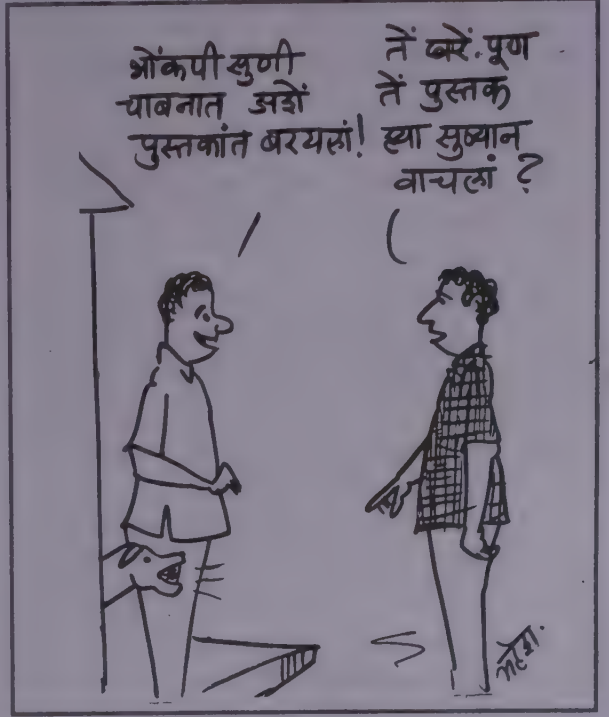 भोंकपी सुणी
चाबनात अशें
पुस्तकांत बरयलां!
तें खरें. पूण
तें पुस्तक
ह्या सुण्यान
वाचलां ?
महेश.